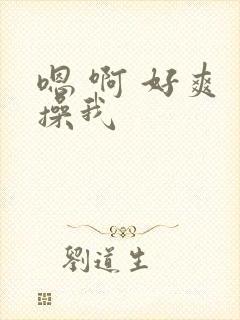 嗯 啊 好爽
操我
劉道生